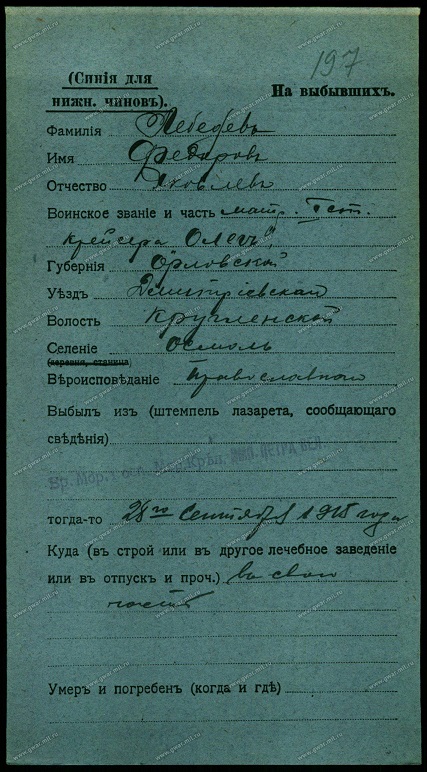 197
(Синія для
нижн. чиновъ).
На выбывшихъ.
Фамилія Лебедевъ
Имя Федоровъ
Отчество Яковлевъ
Воинское званіе и часть матр. 1 ст.
крейсера Олегъ"
Губернія Орловской
Уѣздъ Дмитріевской
Волость Кругленской
Селеніе Осмоль
(деревня, станица)
Вѣроисповѣданіе Православнаго
Выбылъ изъ (штемпель лазарета, сообщающаго
свѣдѣнія)
Вр. Мор. Госп. Мор. Крѣп. ИМП. ПЕТРА ВЕЛ.
тогда-то 28го Сентября 1915 года
Куда (въ строй или въ другое лечебное заведеніе
или въ отпускъ и проч.) въ свою
часть
Умеръ и погребенъ (когда и гдѣ)
www.gwar.mil.ru